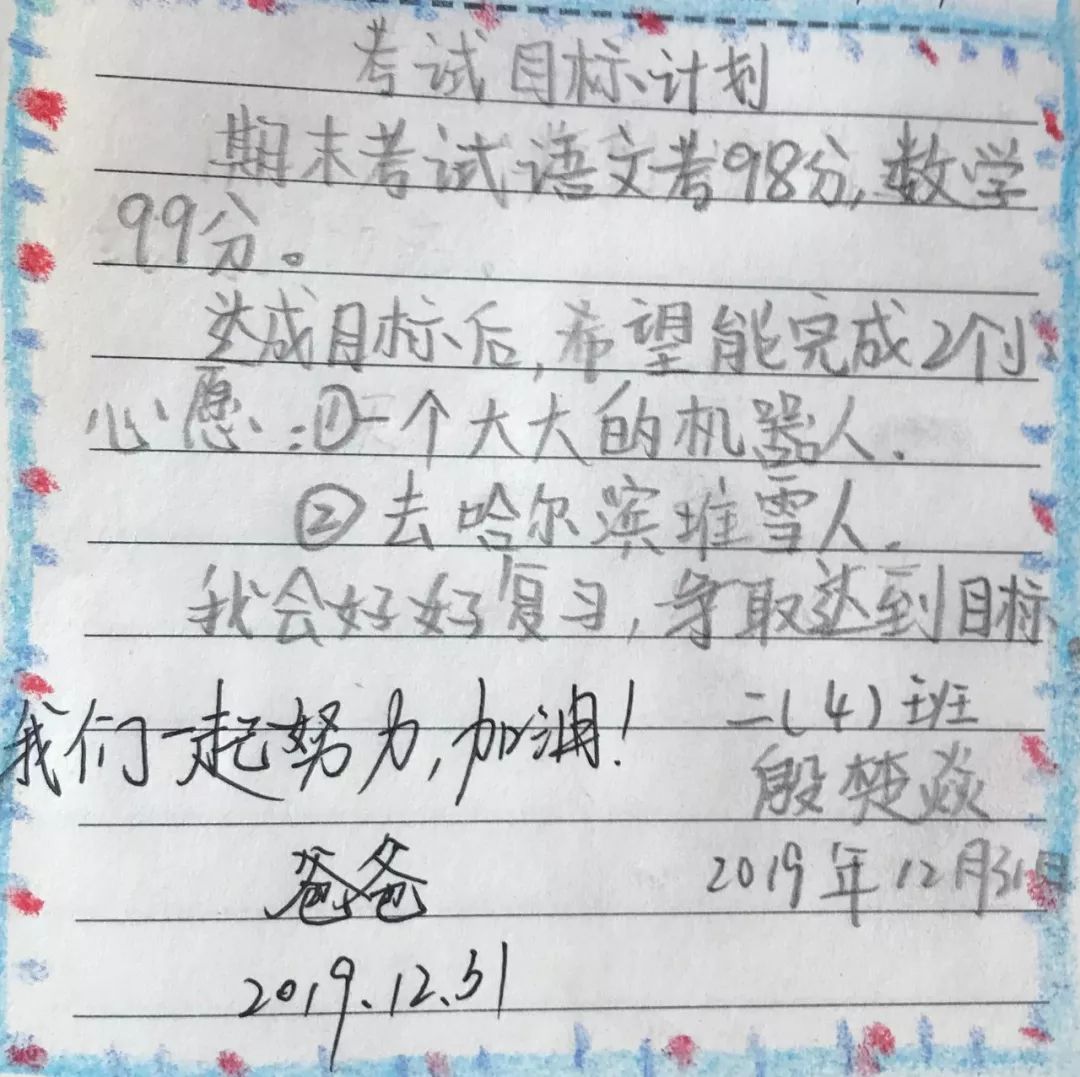 考试目标计划
期末考试语文考98分,数学
99分。
达成目标后,希望能完成2个小
心愿:①一个大大的机器人.
②去哈尔滨堆雪人.
我会好好复习,争取达到目标
二(4)班
我们一起努力,加油!
殷楚焱
爸爸
2019年12月31日
2019.12.31